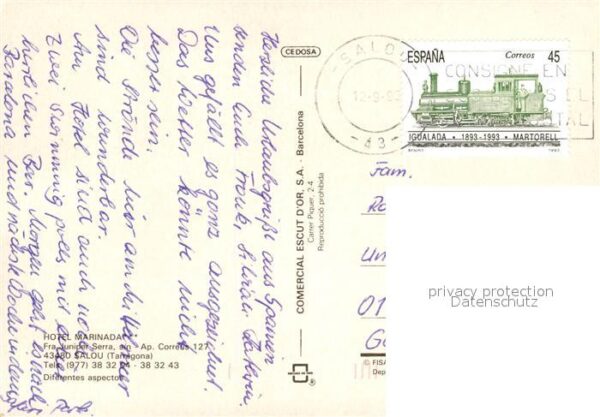 Herzliche Urlaubsgrüße aus Spanien
senden Euch Frank, Silvia,
Uns gefällt es ganz ausgezeichnet.
Das Wetter könnte nicht
besser sein.
Die Strände hier am Mittelmeer
sind wunderbar.
Am Hotel sind auch noch
Zwei Swimming pools mit einer
herrlichen Bar. Morgen geht es nach
Barcelona und nächste Woche
HOTEL MARINADA
Fra. Juniper Serra, s/n - Ap. Correos 127
43480 SALOU (Tarragona)
Tels. (977) 38 32 14 - 38 32 43
Diferentes aspectos
CEDOSA
COMERCIAL ESCUT D'OR, S.A. - Barcelona
Carrer Piquer, 2-4
Reproducció prohibida
® FISA
Dep
SALOU
12-9-93
- 43 -
CONSIGNE EN
ESPAÑA Correos 45
IGUALADA · 1893-1993 · MARTORELL
Fam.
01
privacy protection
Datenschutz